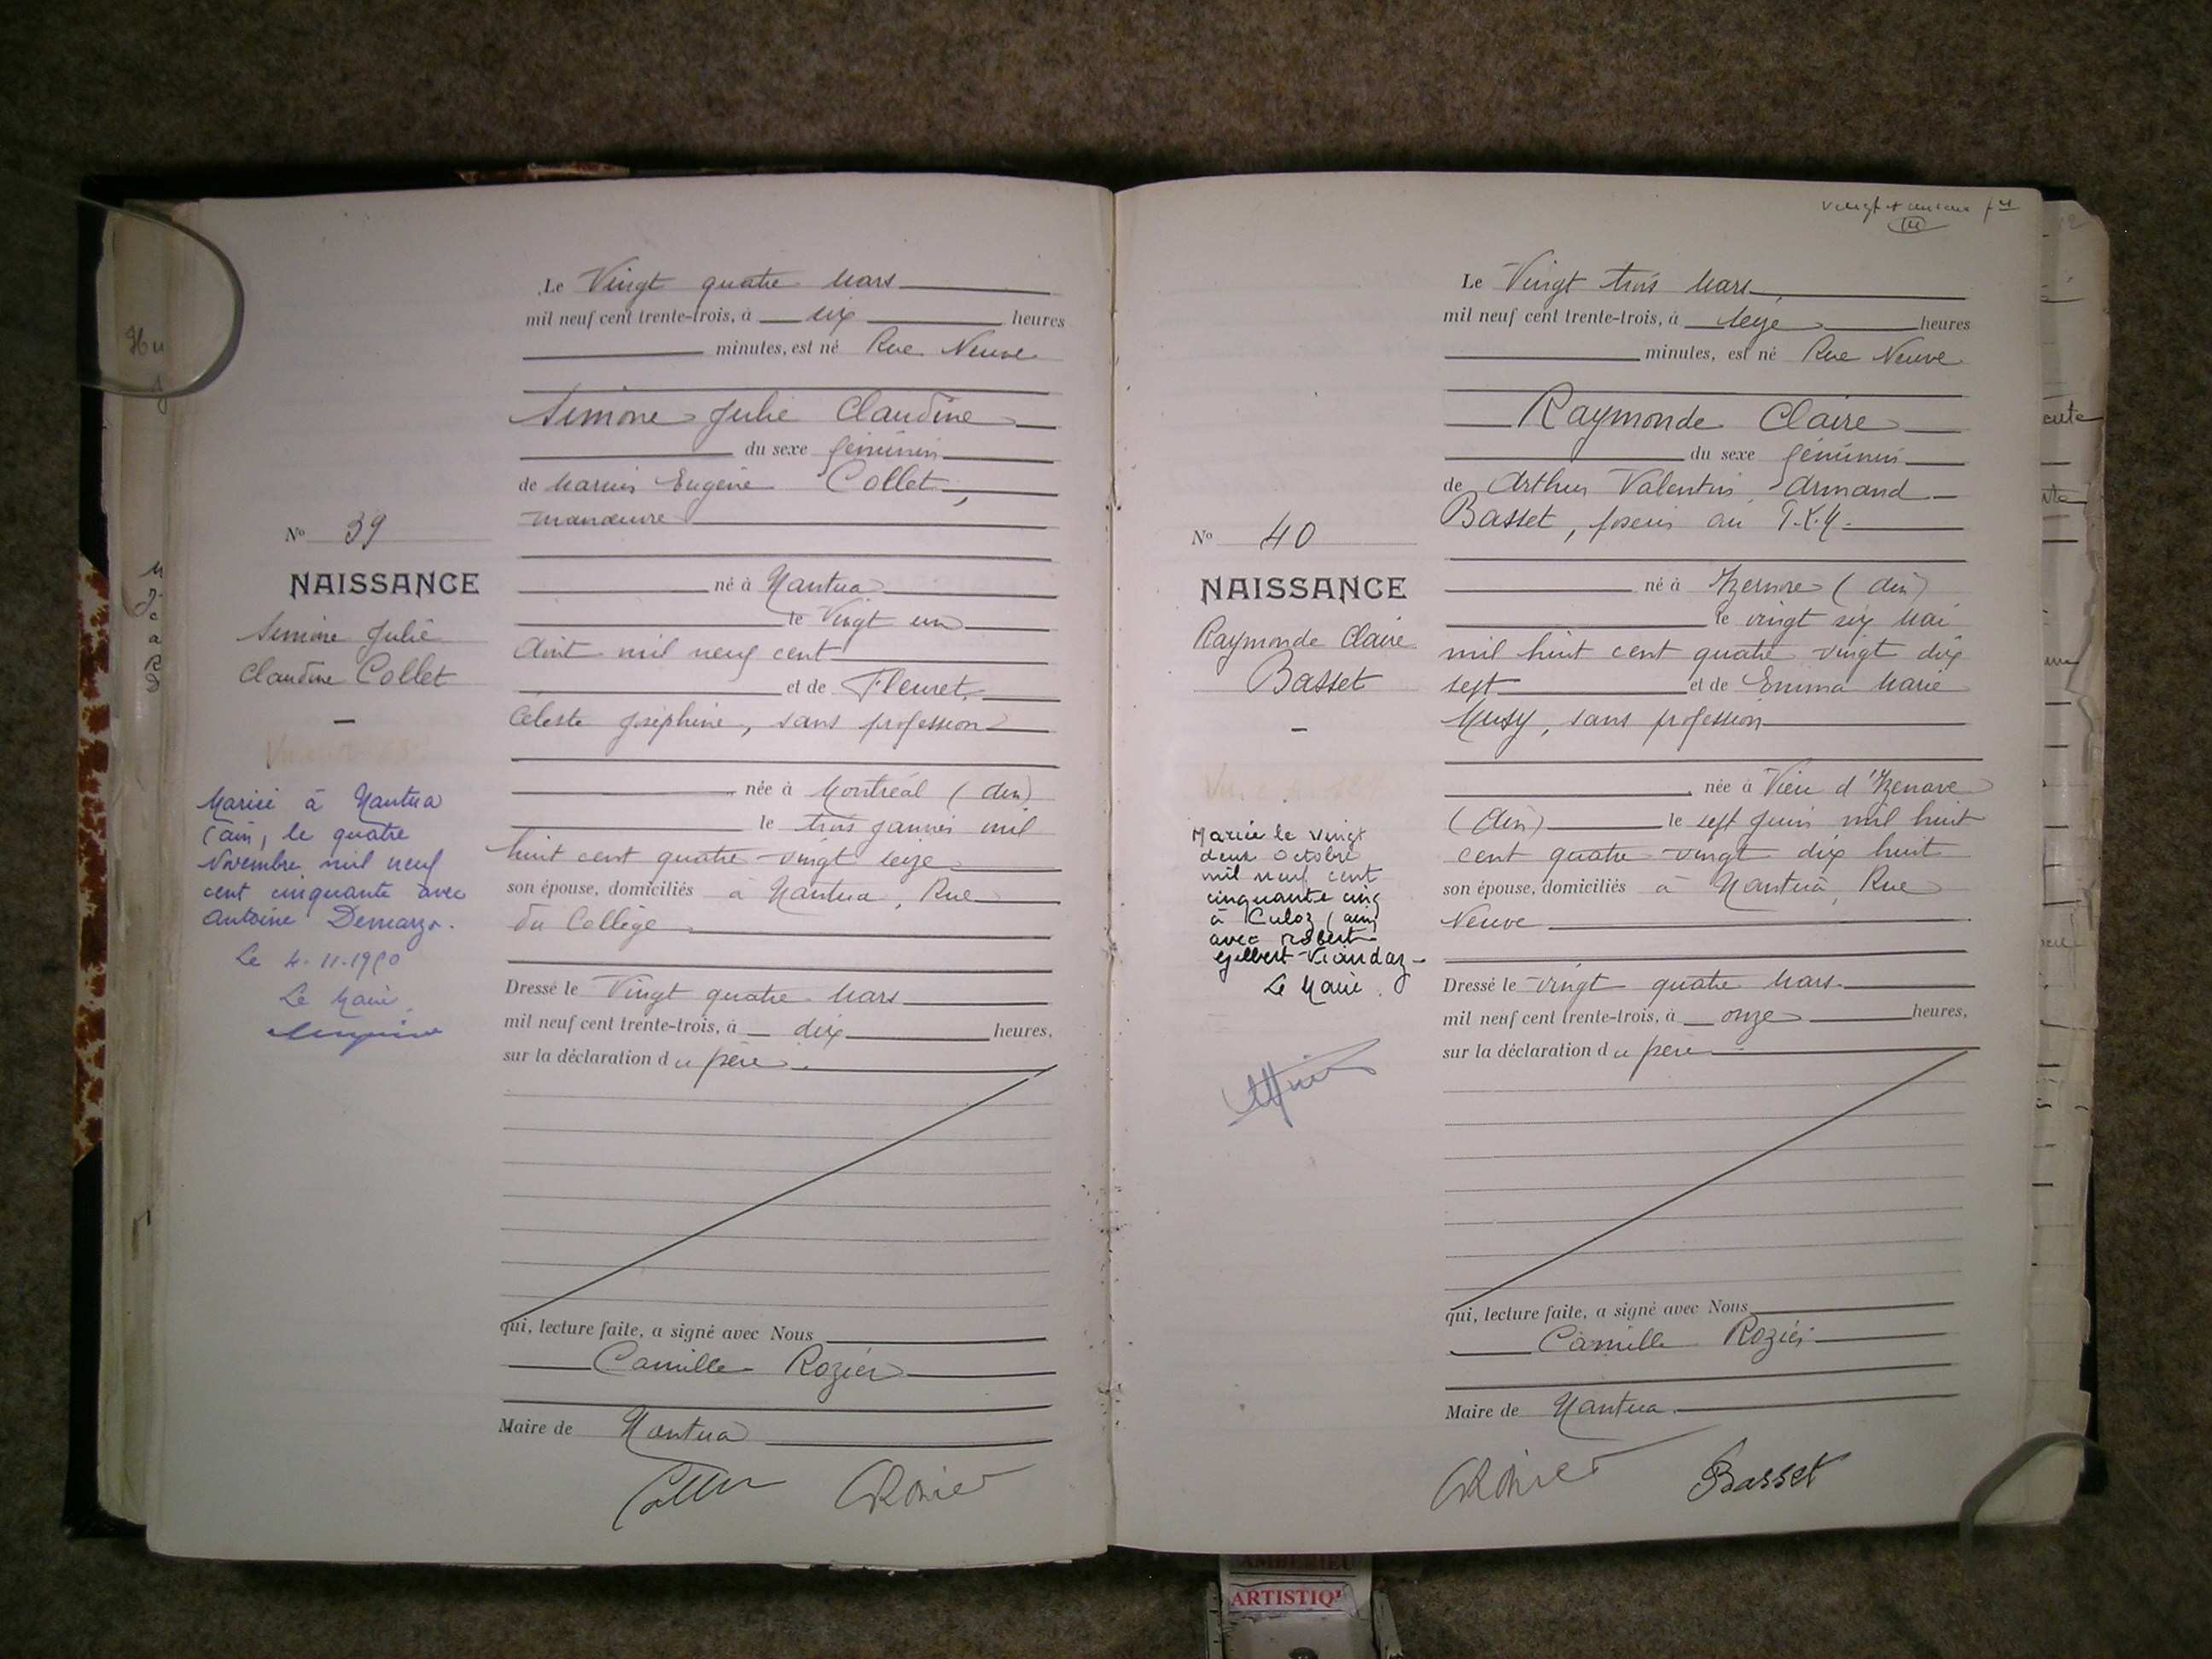 Le Vingt quatre Mars
mil neuf cent trente-trois, à six heures
minutes, est né Rue Neuve
Simone Julie Claudine
du sexe féminin
de Marius Eugène Collet,
manœuvre
né à Nantua
le Vingt un
Août mil neuf cent
et de Fleuret,
Céleste Joséphine, sans profession
née à Montréal (Ain)
le trois janvier mil
huit cent quatre-vingt seize
son épouse, domiciliés à Nantua, Rue
du Collège
Dressé le Vingt quatre Mars
mil neuf cent trente-trois, à dix heures,
sur la déclaration du père.
qui, lecture faite, a signé avec Nous
Camille Rozier
Maire de Nantua
No 39
NAISSANCE
Simone Julie
Claudine Collet
Mariée à Nantua
(Ain, le quatre
Novembre mil neuf
cent cinquante avec
Antoine Demarzo.
Le 4-11-1950
Le Maire,
Le Vingt trois Mars
mil neuf cent trente-trois, à seize heures
minutes, est né Rue Neuve
Raymonde Claire
du sexe féminin
de Arthur Valentin Armand
Basset, au
né à Izernore (Ain)
le vingt six Mai
mil huit cent quatre vingt dix
sept et de Emma Marie
Musy, sans profession
née à Vieu d'Izenave
(Ain) le sept Juin mil huit
cent quatre-vingt dix huit
son épouse, domiciliés à Nantua, Rue
Neuve
Dressé le vingt quatre Mars
mil neuf cent trente-trois, à onze heures,
sur la déclaration du père
qui, lecture faite, a signé avec Nous
Camille Rozier
Maire de Nantua
Basset
No 40
NAISSANCE
Raymonde Claire
Basset
Mariée le vingt
deux Octobre
mil neuf cent
cinquante cinq
à Culoz (Ain)
avec Robert
Gilbert Viandaz
Le Maire.
AMBERIEU
ARTISTIQ